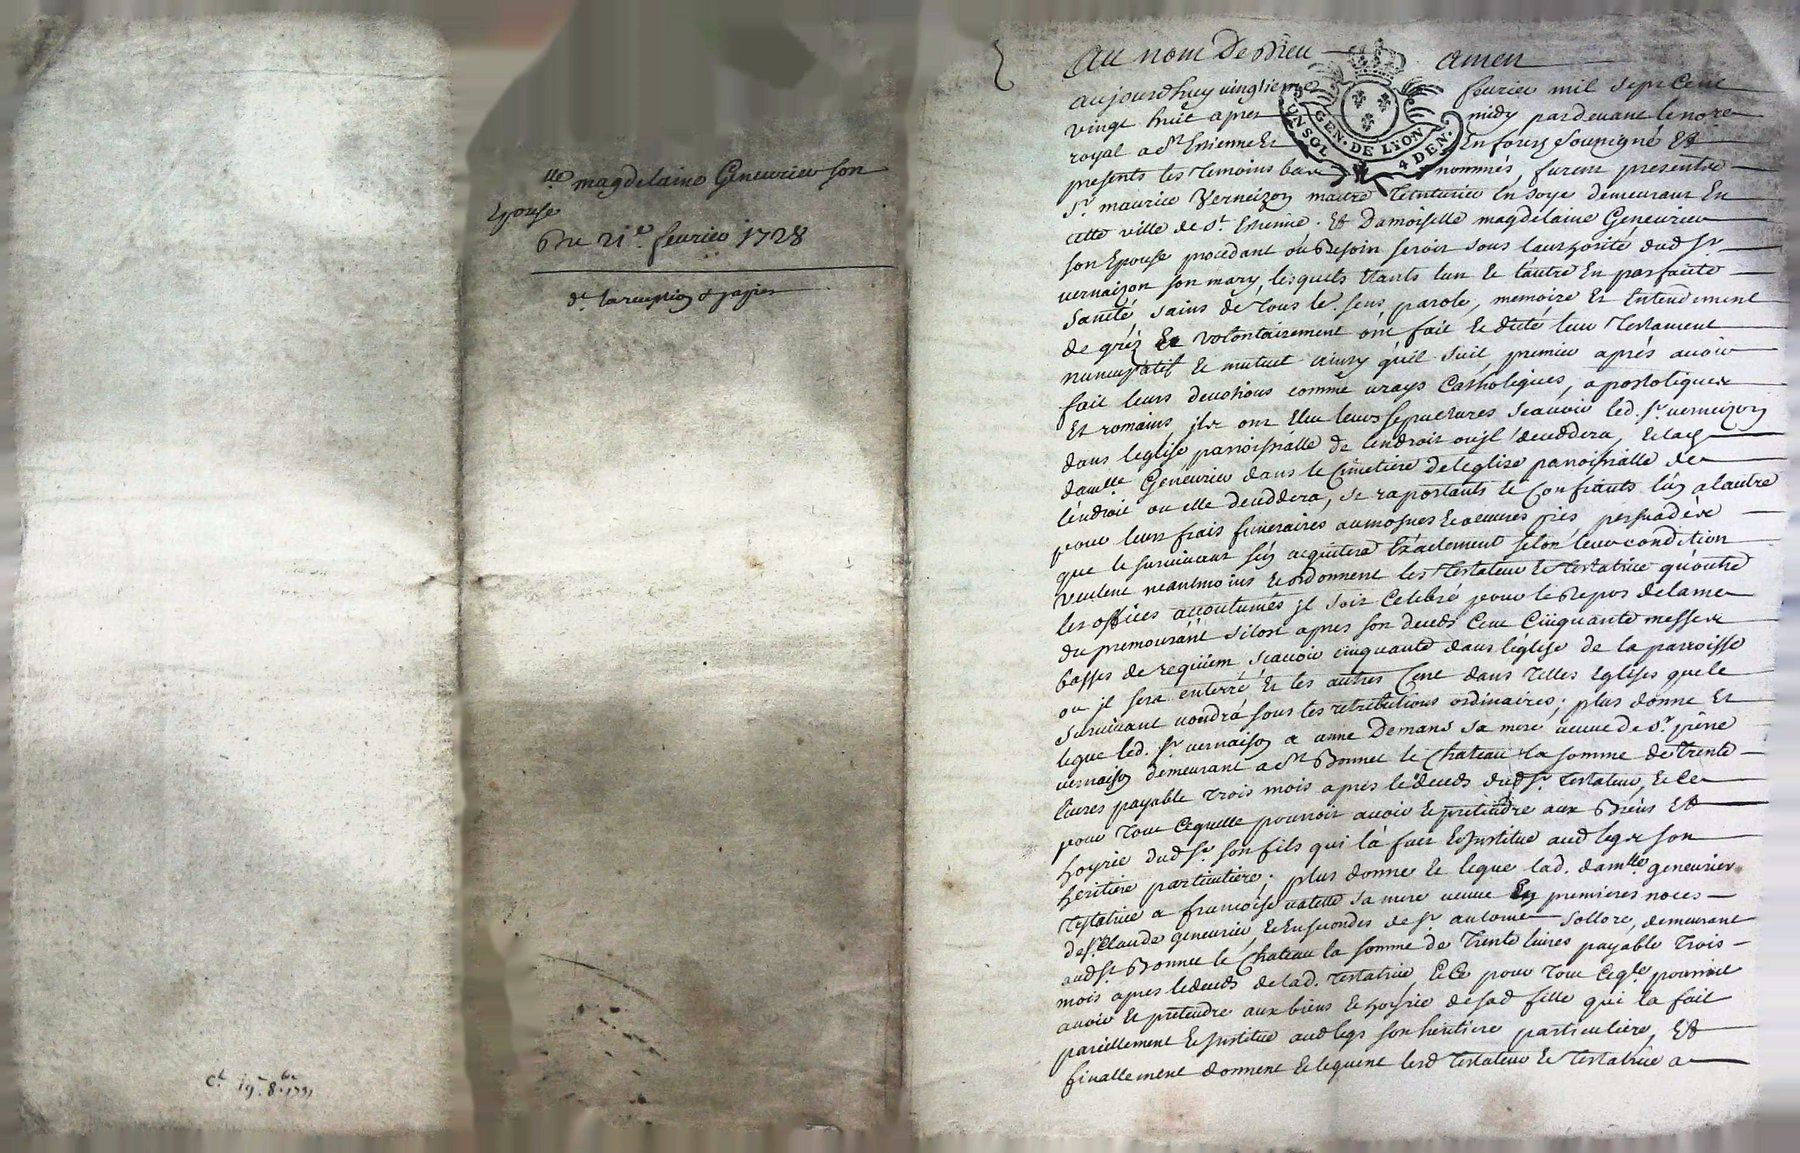 lle magdelaine Geneurier son
Epouse
Du 21e fevrier 1728
dt la reception & papier
Ct 19e 8bre 1731
Au nom De Dieu amen
aujourdhuy vingtieme fevrier mil sept Cent
vingt huit apres midy pardevant le nore
royal a St Estienne Et En forez Soussigné Et
presents les Temoins bas nommés, furent presents
Sr. maurice Verneizon maitre Teinturier En soye demeurant En
cette ville de St. Etienne. Et Damoiselle magdelaine Geneurier
son Epouse procedant ou Besoin seroit sous l'authorité dud Sr
vernaizon son mary, lesquels Etants l'un Et l'autre En parfaite
Santé sains de Tous le. sens, parole, memoire Et Entendement
de gréz Et volontairement ont fait Et dicté leur Testament
nuncupatif Et mutuel ainsy qu'il suit, premier aprés avoir
fait leurs devotions comme vrays Catholiques, apostoliques
Et romains jls ont Elu leurs sepultures scavoir led. Sr. verneizon
dans l'eglise parroissialle de l'endroit ou jl deceddera, Et lad
damlle Geneurier dans le Cimetiere de leglise parroissialle de
lendroit ou elle deceddera, se rapportants Et Confiants l'un a lautre
pour leurs frais funeraires aumosnes Et oeuvres pies persuadés
que le survivant s'en acquitera Exactement selon leur condition
veulent neantmoins Et ordonnent les Testateur Et Testatrice qu'outre
les offices accoutumés jl soit Celebré pour le Repos de lame
du premourant sitost apres son deceds Cent Cinquante messes
basses de requiem, scavoir cinquante dans l'église de la parroisse
ou jl sera enterré Et les autres Cent dans Telles Eglises que le
survivant voudrá sous les retributions ordinaires; plus donne Et
legue led. Sr vernaizon a anne Demans sa mere veuve de Sr. pierre
vernaizon demeurant a St Bonnet le Chateau la somme de Trente
livres payable Trois mois apres le deceds dud Sr Testateur, Et Ce
pour Tout Ce quelle pourroit avoir Et pretendre aux Biens Et
hoyrie dud Sr son fils qui l'a fait Et Institue aud legs son
heritiere particuliere. plus donne Et legue lad. damlle geneurier
Testatrice a francoise valette sa mere veuve En premieres noces
de Sr Claude geneurier Et En secondes de Sr antoine Sollore, demeurant
aud St Bonnet le Chateau la somme de Trente livres payable Trois
mois apres le deceds de lad. Testatrice Et Ce pour Tout Ce qle pourroit
avoir Et pretendre aux biens Et hoyrie de sad fille qui la fait
pareillement Et Institue aud legs son heritiere particuliere, Et
finallement donnent Et leguent lesd Testateur Et Testatrice a
UN SOL GEN. DE LYON 4 DEN.